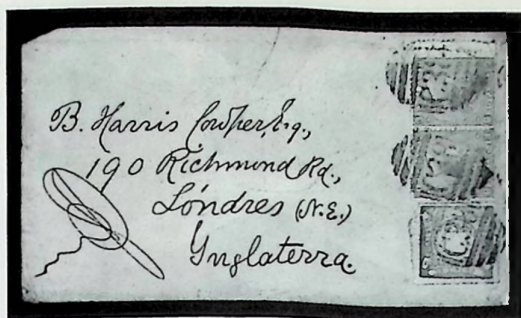 B. Harris Cowper, Esq.,
190 Richmond Rd.,
Lóndres (N.E.)
Ynglaterra.